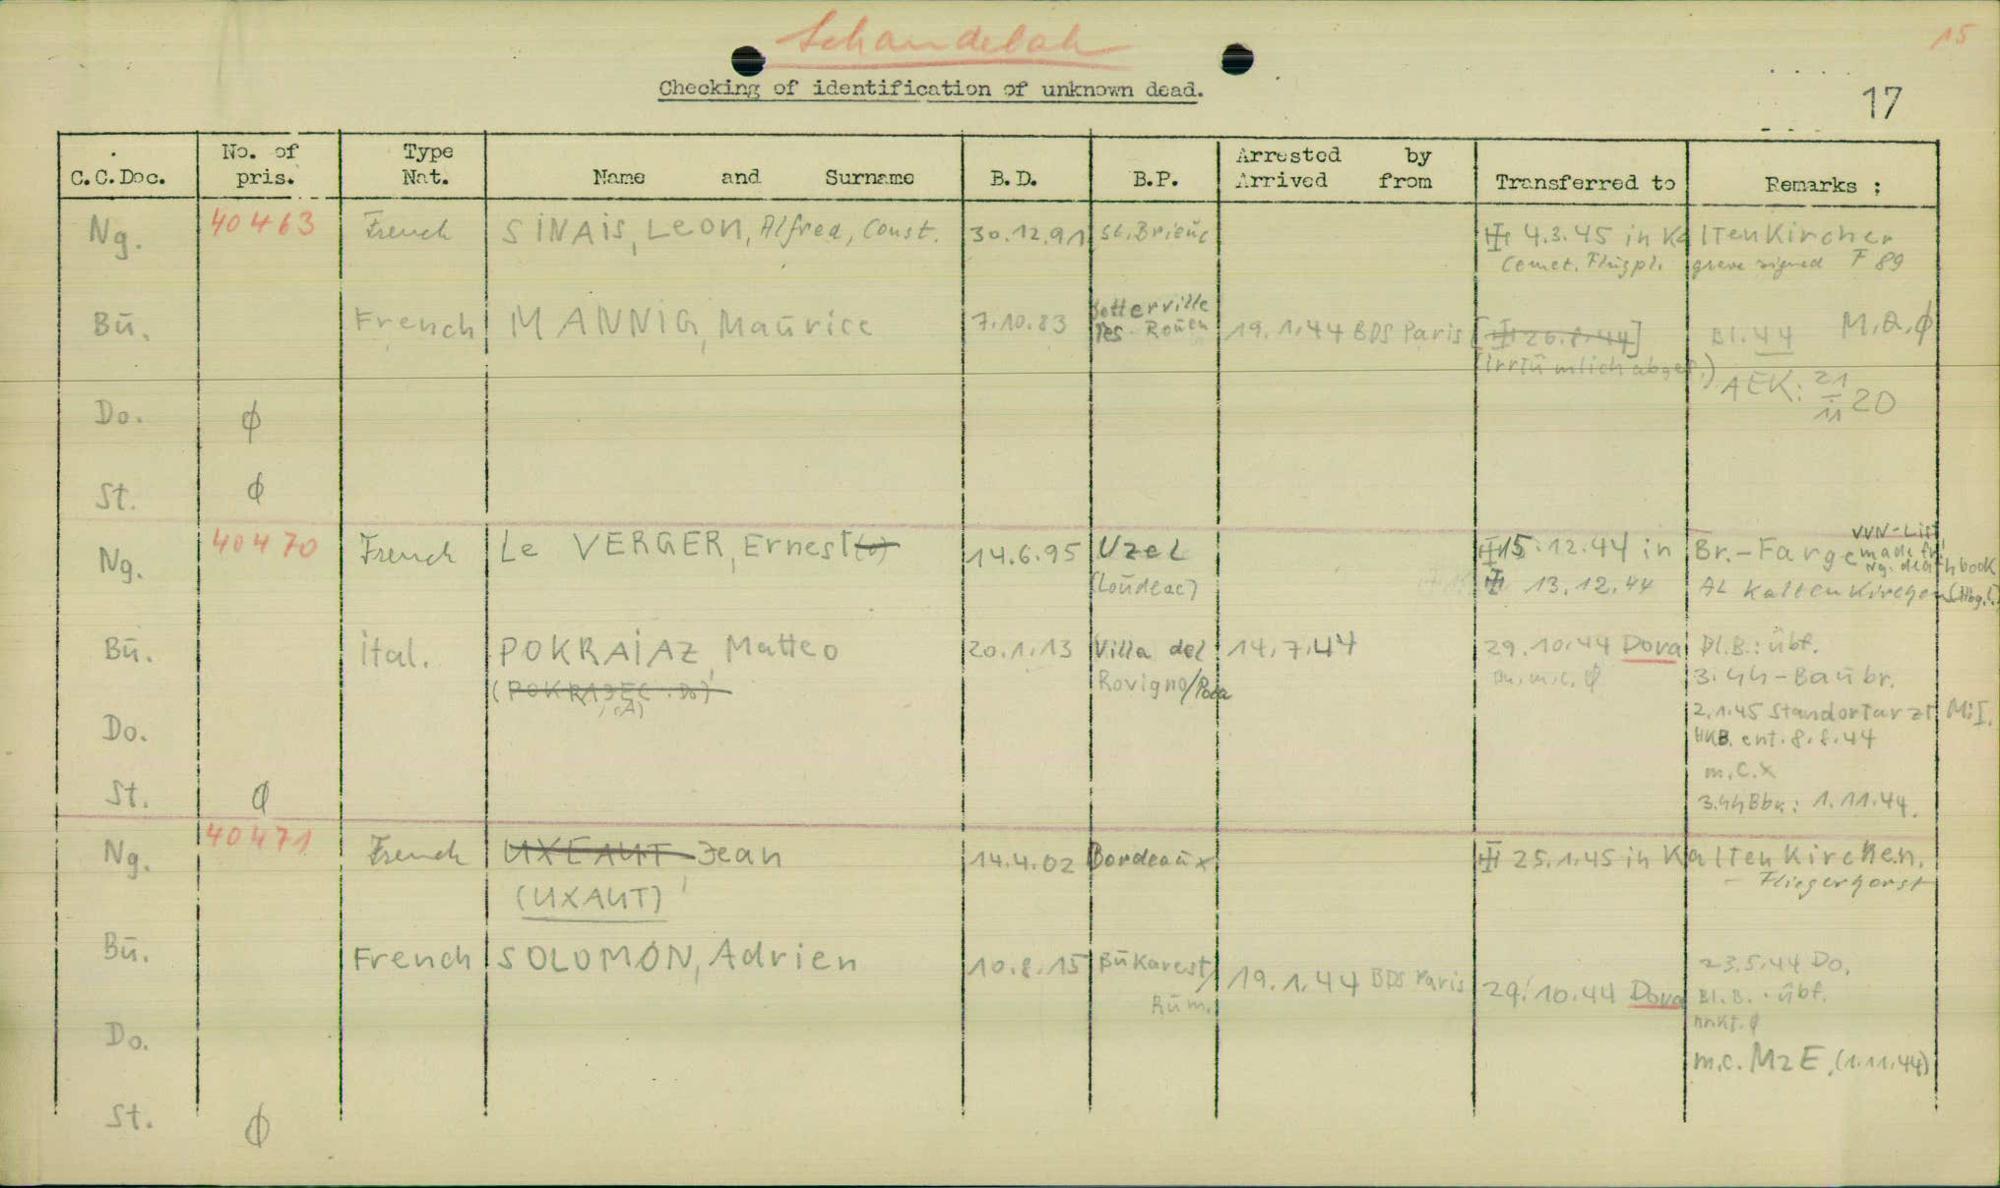 Schandelah
15
Checking of identification of unknown dead.
17
C.C.Doc. No. of pris. Type Nat. Name and Surname B.D. B.P. Arrested by Arrived from Transferred to Remarks :
Ng. 40463 French SINAIS, LEON, Alfred, Const. 30.12.91 St. Brieuc 4.3.45 in Kaltenkirchen
Cemet. Flugpl. grave signed F 89
Bü. French MANNIG, Maurice 7.10.83 Sotterville les Rouen 19.1.44 BDS Paris [26.8.44] Bl. 44 M.Q. ϕ
(irrtümlich abges.) AEK: 21/11 20
Do. ϕ
St. ϕ
Ng. 40470 French Le VERGER, Ernest (o) 14.6.95 Uzel 15.12.44 in Br.-Farge VVN-List made fr. Ng. deathbook
(Loudeac) 13.12.44 AL Kaltenkirchen (Hbg.)
Bü. ital. POKRAIAZ, Matteo 20.1.13 Villa del 14.7.44 29.10.44 Dora Bl.B.: übf.
(POKRAJEC Do) Rovigno/Pola ϕ 3.44-Baubr.
Do. 2.1.45 Standortarzt M:I.
HKB. ent. 8.8.44
m.c.x
St. ϕ 3.44Bbr.: 1.11.44.
Ng. 40471 French UXEAUT Jean 14.4.02 Bordeaux 25.1.45 in Kaltenkirchen.
(UXAUT) - Fliegerhorst
Bü. French SOLOMON, Adrien 10.8.15 Bukarest/ 19.1.44 BDS Paris 29.10.44 Dora 23.5.44 Do.
Rum. Bl.B.: übf.
Do. nnkt. ϕ
m.c. MzE, (1.11.44)
St. ϕ